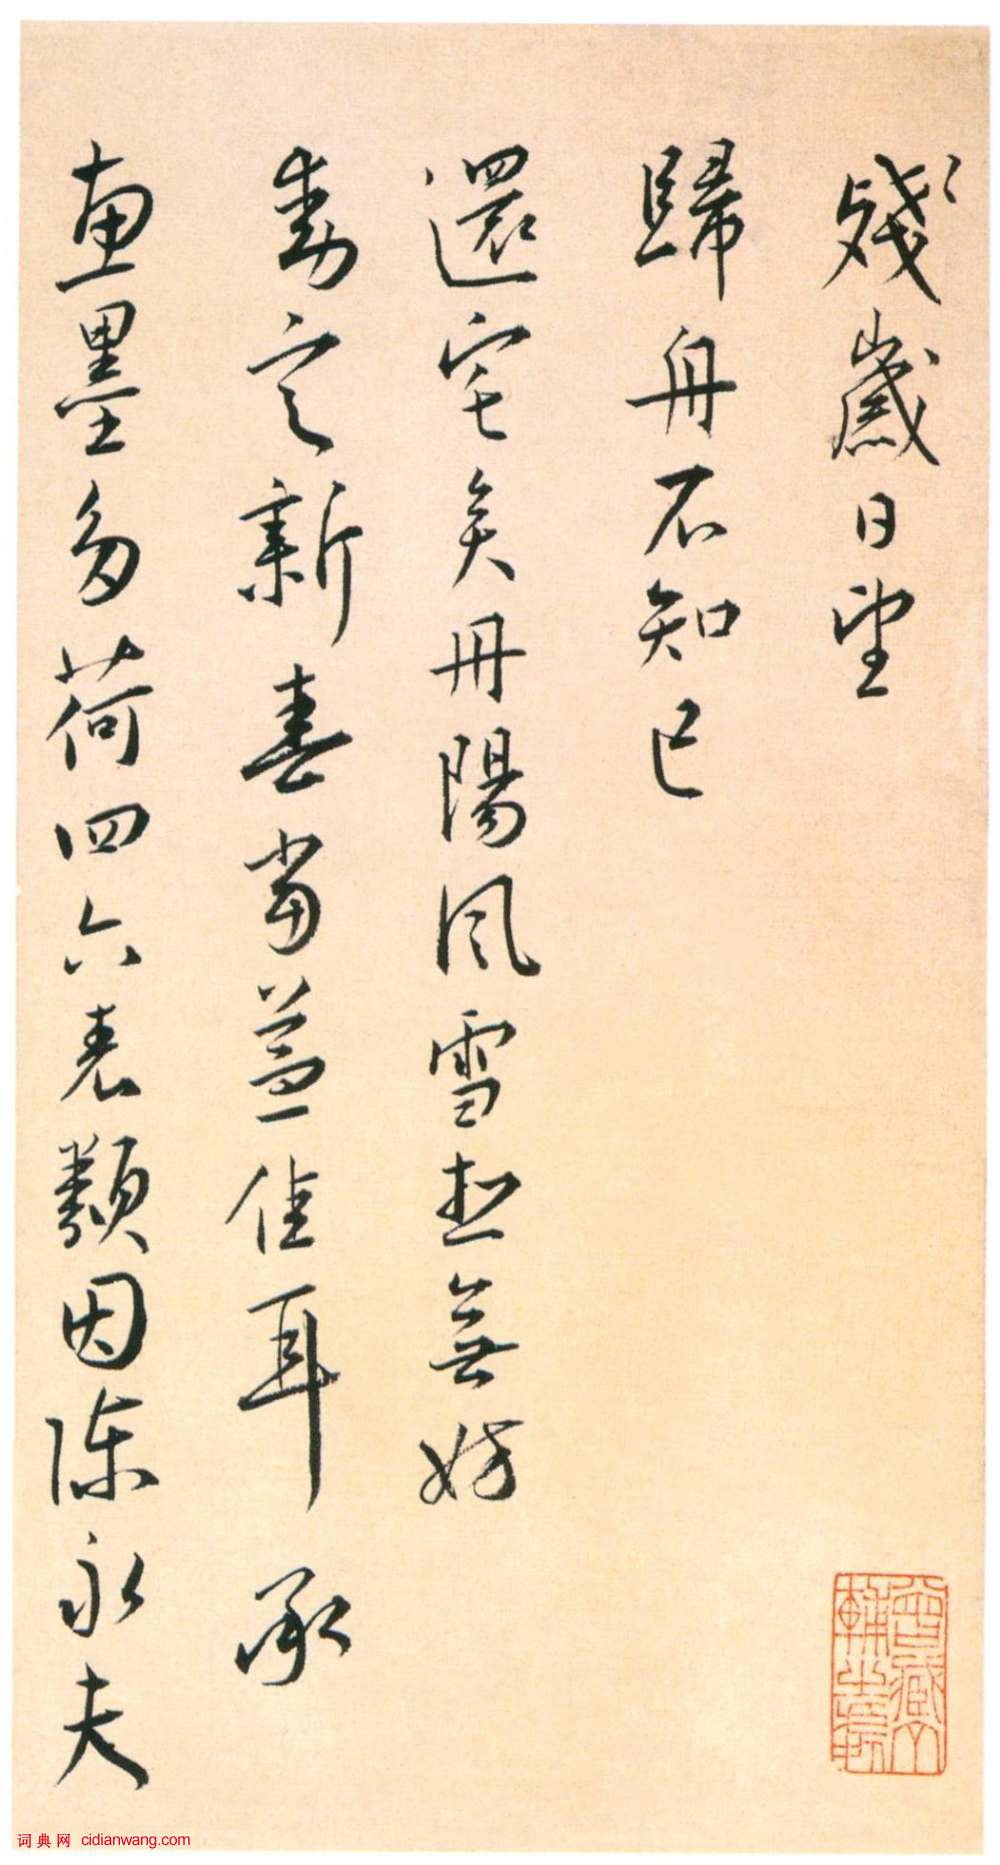 殘歲日望
歸舟不知已
還宅矣丹陽風雪想無妨
動定新喜當益佳耳承
惠墨多荷四六表類因陳永夫
词典网 cidianwang.com